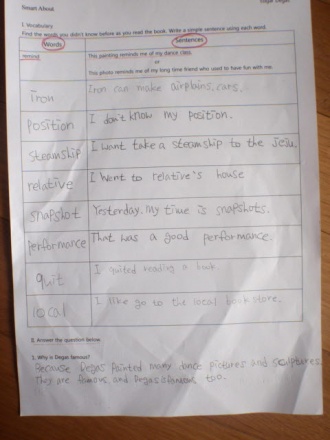 Smart About
Edgar Degas
I. Vocabulary
Find the words you didn't know before as you read the book. Write a simple sentence using each word.
Words
Sentences
remind
This painting reminds me of my dance class.
or
This photo reminds me of my long time friend who used to have fun with me.
iron
Iron can make airplains, cars.
position
I don't know my position.
steamship
I want take a steamship to the
relative
I went to relative's house
snapshot
Yesterday, my time is snapshots.
performance
That was a good performance.
quit
I quited reading a book.
local
I like go to the local book store.
II. Answer the question below.
1. Why is Degas famous?
Because Degas painted many dance pictures and sculptures.
They are famous and Degas is famous too.